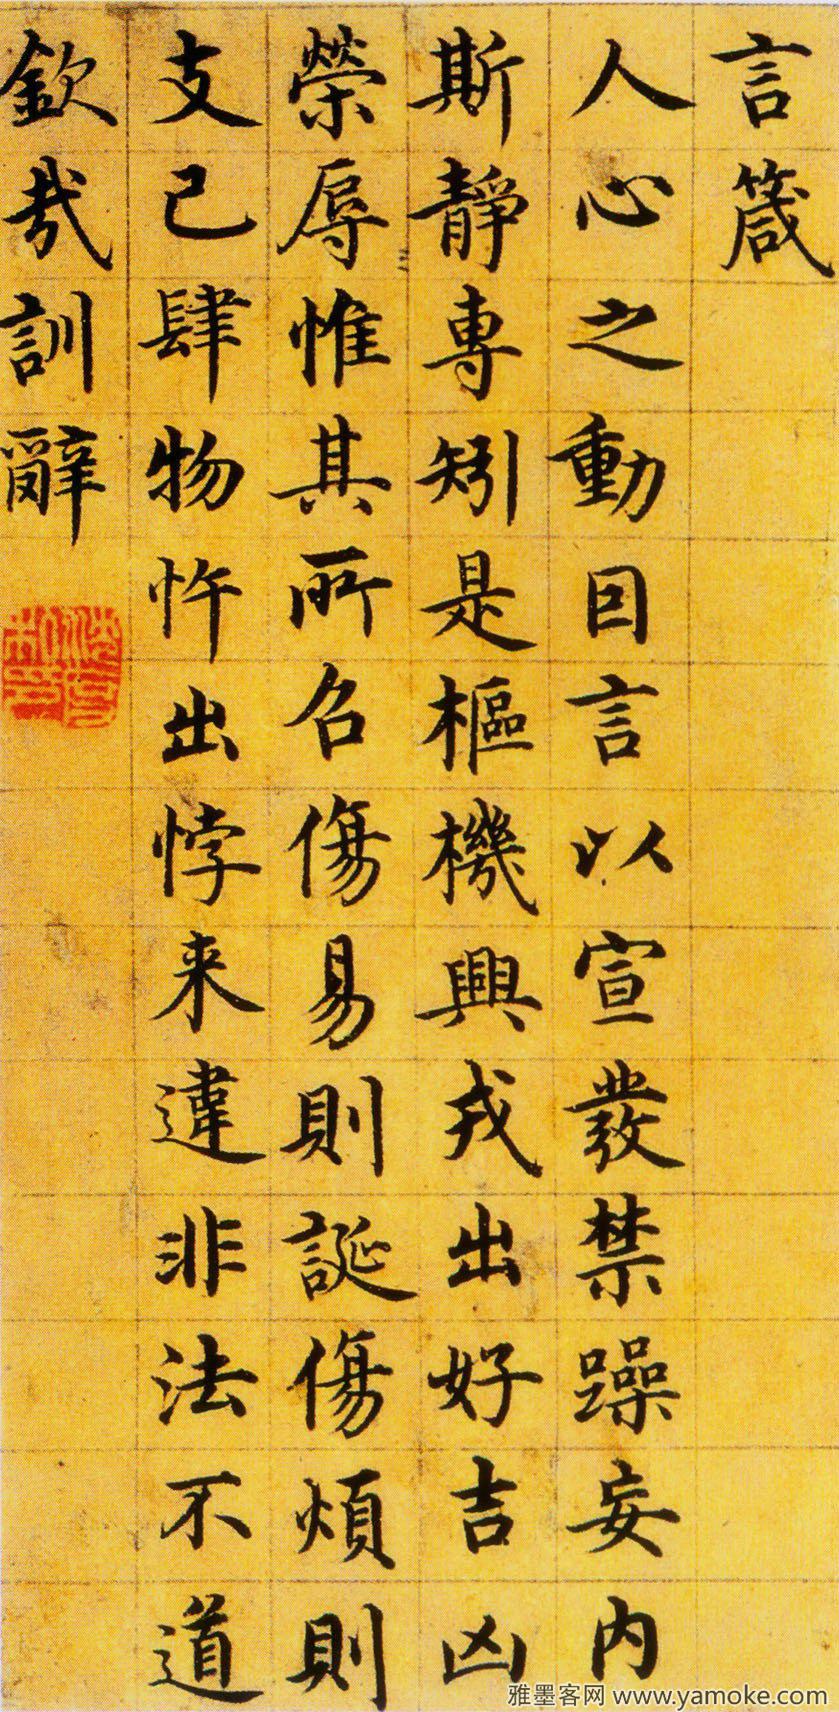 言箴
人心之動因言以宣發禁躁妄內
斯靜專矧是樞機興戎出好吉凶
榮辱惟其所召傷易則誕傷煩則
支己肆物忤出悖来違非法不道
欽哉訓辭
雅墨客网 www.yamoke.com